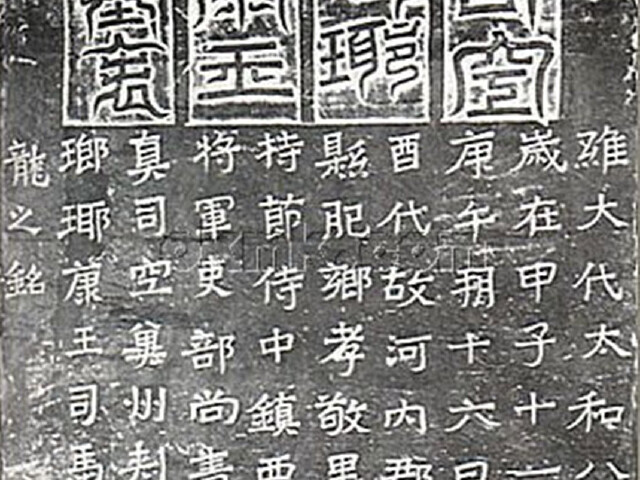 司空
琅琊
康王
維大代太和八
歲在甲子十一
庚午朔十六日
酉代故河內郡
縣肥鄉孝敬里
持節侍中鎮西
將軍吏部尚書
真司空冀州刺
瑯琊康王司馬
龍之銘